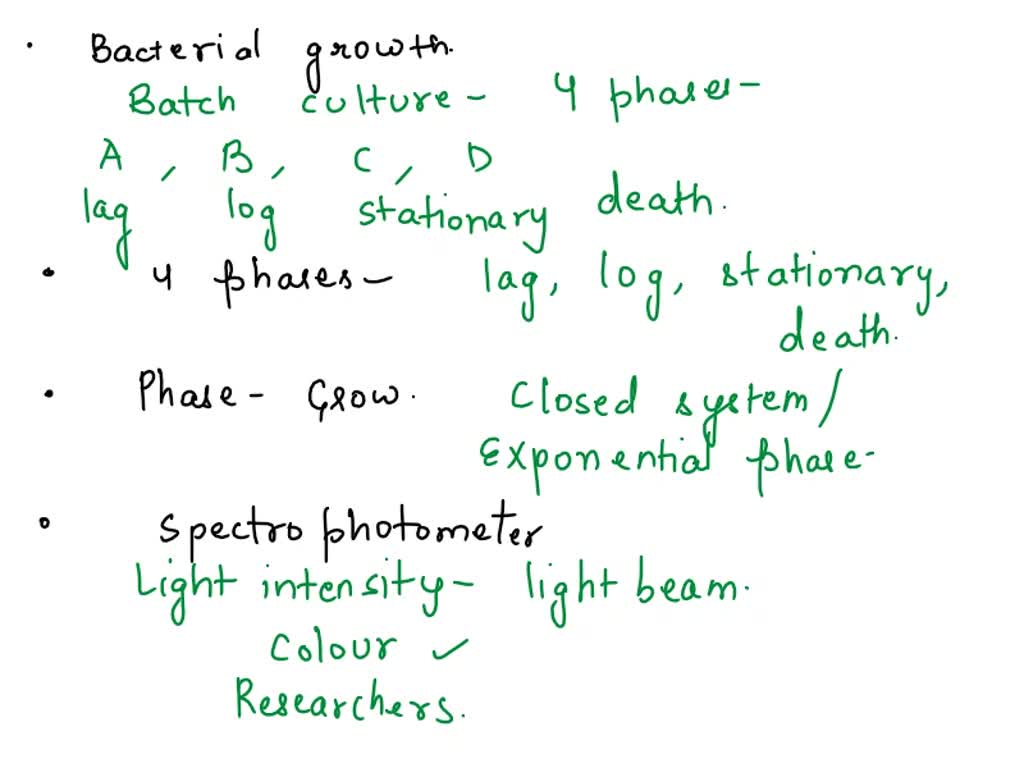 • Bacterial growth.
Batch culture - 4 phases -
A, B, C, D
lag log stationary death.
• 4 phases - lag, log, stationary,
death.
• Phase - Grow. Closed system /
Exponential phase -
• Spectrophotometer
Light intensity - light beam.
Colour ✓
Researchers.